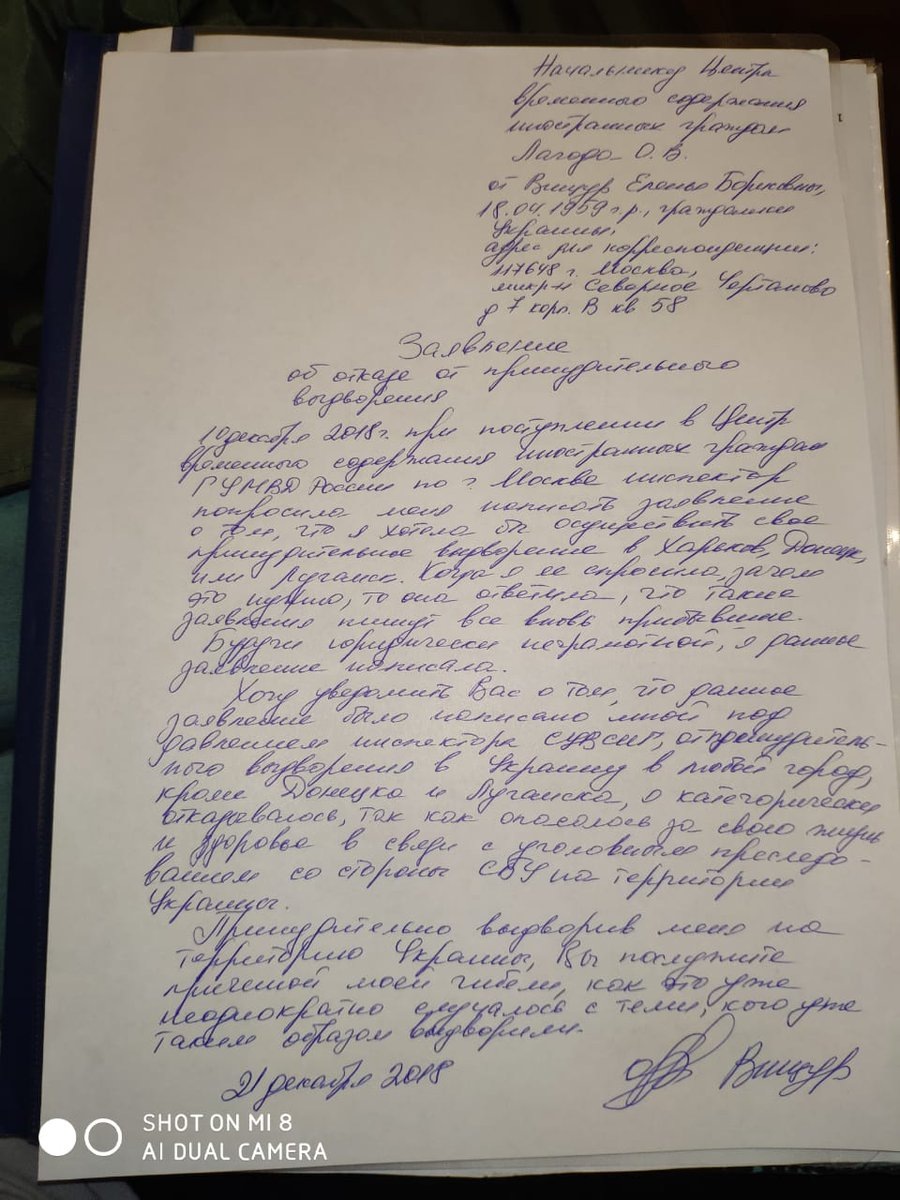 Начальнику Центра
временного содержания
иностранных граждан
Лагода О.В.
от Вищур Елены Борисовны,
18.04.1959 г.р., гражданки
Украины,
адрес для корреспонденции:
117648 г. Москва,
микр-н Северное Чертаново
д 7 корп. В кв 58
Заявление
об отказе от принудительного
выдворения
10 декабря 2018г. при поступлении в Центр
временного содержания иностранных граждан
ГУМВД России по г. Москве инспектор
попросила меня написать заявление
о том, что я хотела бы осуществить свое
принудительное выдворение в Харьков, Донецк,
или Луганск. Когда я ее спросила, зачем
это нужно, то она ответила, что такие
заявления пишут все вновь прибывшие.
Будучи юридически неграмотной, я данные
заявление написала.
Хочу уведомить Вас о том, что данное
заявление было написано мной под
давлением инспектора СУВСИГ, от принудитель-
ного выдворения в Украину в любой город,
кроме Донецка и Луганска, я категорически
отказывалось, так как опасалось за свою жизнь
и здоровье в связи с уголовным преследо-
ванием со стороны СБУ на территории
Украины.
Принудительно выдворив меня на
территорию Украины, Вы послужите
причиной моей гибели, как это уже
неоднократно случалось с теми, кого уже
таким образом выдворили.
21 декабря 2018 Вищур
SHOT ON MI 8
AI DUAL CAMERA